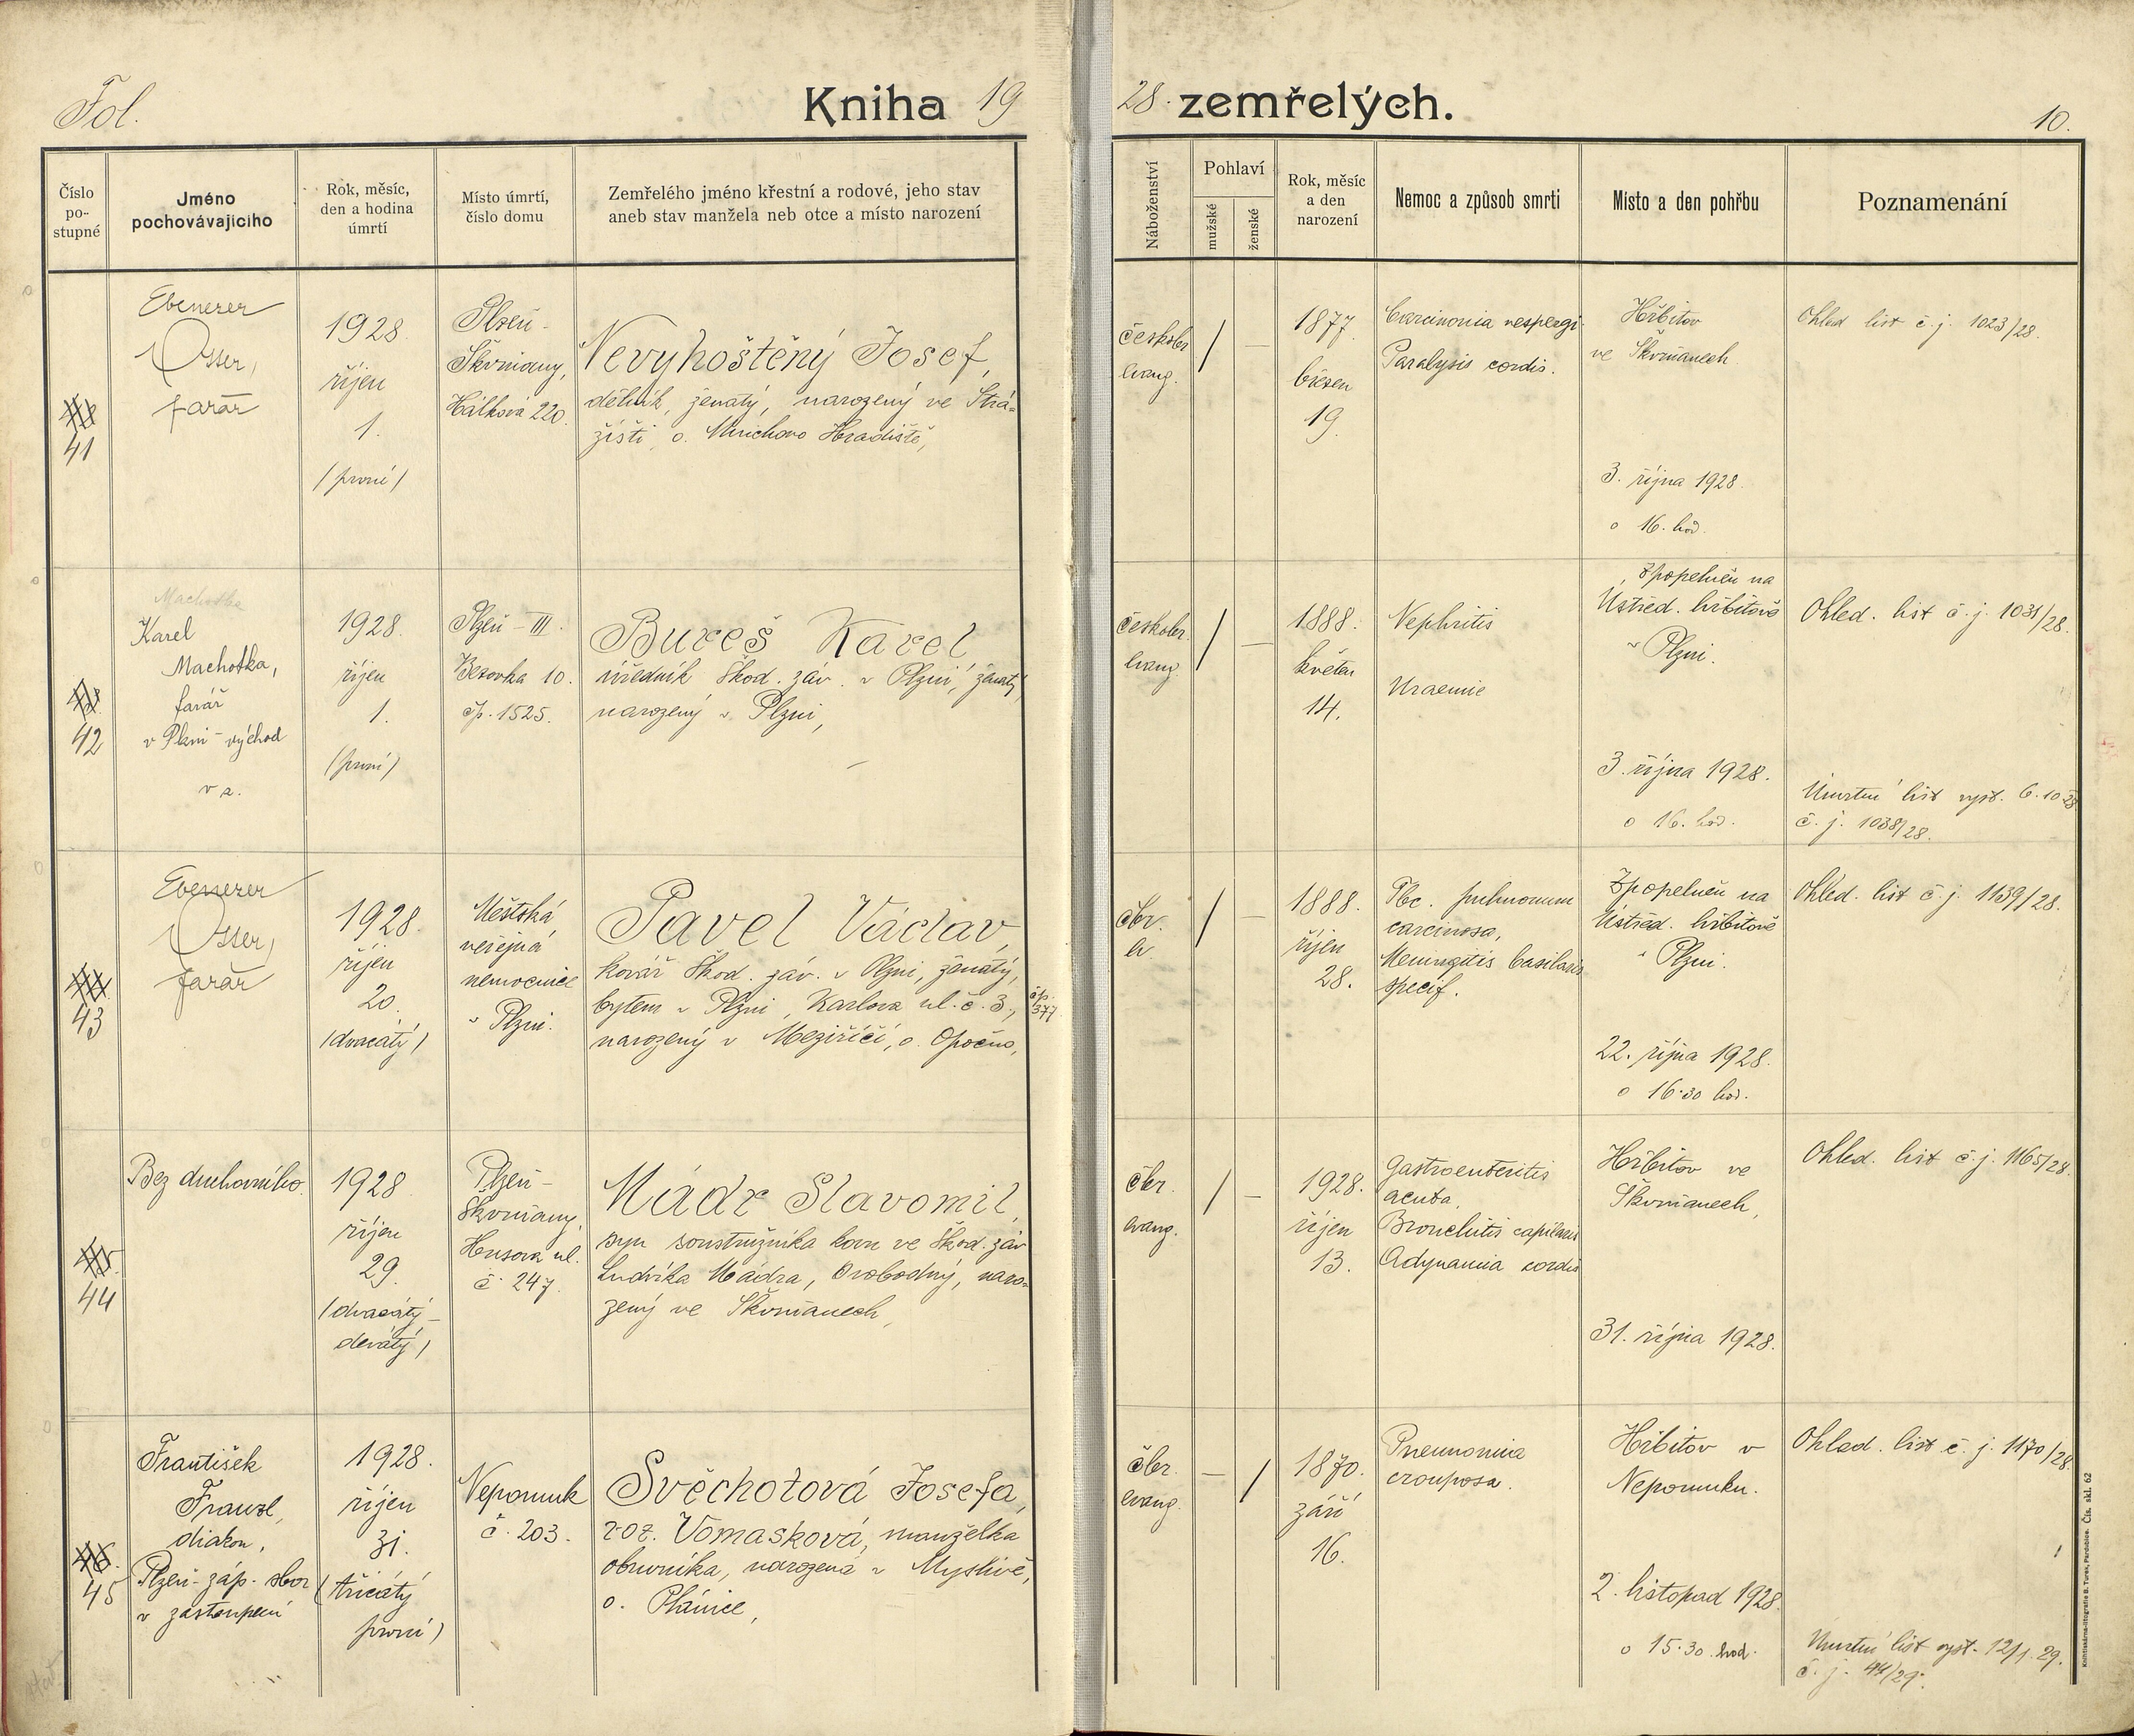 Fol.
Kniha 1928. zemřelých.
10.
Číslo po-stupné
Jméno pochovávajícího
Rok, měsíc, den a hodina úmrtí
Místo úmrtí, číslo domu
Zemřelého jméno křestní a rodové, jeho stav
aneb stav manžela neb otce a místo narození
Náboženství
Pohlaví
mužské
ženské
Rok, měsíc a den narození
Nemoc a způsob smrti
Místo a den pohřbu
Poznamenání
41
Ebenezer
Otter,
farář
1928.
říjen
1.
/první/
Plzeň-
Škvrňany,
Hálkova 220.
Nevyhoštěný Josef,
dělník, ženatý, narozený ve Strá-
žišti, o. Mnichovo Hradiště,
českobr.
evang.
/
—
1877.
březen
19.
Paralysis cordis.
Hřbitov
ve Škvrňanech
3. října 1928.
o 16. hod.
Ohled list č. j. 1023/28.
42
Machotka
Karel
Machotka,
farář
v Plzni-východ
v z.
1928.
říjen
1.
(první)
Plzeň-III.
Bezovka 10.
čp. 1525.
Bureš Karel
úředník Škod. záv. v Plzni, ženatý,
narozený v Plzni,
českobr.
evang.
/
—
1888.
květen
14.
Nephritis
Uraemie
Zpopelněn na
Ústřed. hřbitově
v Plzni.
3. října 1928.
o 16. hod.
Ohled. list č. j. 1031/28.
Úmrtní list vyst. 6.10.28
č. j. 1038/28.
43
Ebenezer
Otter,
farář
1928.
říjen
20.
/dvacátý/
Městská
veřejná
nemocnice
v Plzni.
Pavel Václav,
kovář Škod. záv. v Plzni, ženatý,
bytem v Plzni, Karlova ul. č. 3., čp. 377
narozený v Meziříčí, o. Opočno,
čbr.
ev.
/
—
1888.
říjen
28.
Tbc. pulmonum
carcinosa,
Meningitis basilaris
specif.
Zpopelněn na
Ústřed. hřbitově
v Plzni.
22. října 1928.
o 16.30 hod.
Ohled. list č. j. 1139/28.
44
Bez duchovního.
1928
říjen
29.
/dvacátý-
devátý/
Plzeň-
Škvrňany,
Husova ul.
č. 247.
Mádr Slavomil,
syn soustružníka kovu ve Škod. záv
Ludvíka Mádra, svobodný, naro-
zený ve Škvrňanech,
čbr.
evang.
/
—
1928.
říjen
13.
Gastroenteritis
acuta,
Bronchitis capilaris
Adynamia cordis
Hřbitov ve
Škvrňanech,
31. října 1928.
Ohled. list č. j. 1165/28.
45
František
Franzl,
diakon,
Plzeň-záp. sbor
v zastoupení
1928.
říjen
31.
(třicátý
první)
Nepomuk
č. 203.
Svěchotová Josefa,
roz. Vomasková, manželka
obuvníka, narozená v Myslívě,
o. Plánice,
čbr.
evang.
—
/
1870.
září
16.
Pneumonia
crouposa.
Hřbitov v
Nepomuku.
2. listopad 1928.
o 15.30 hod.
Ohled. list č. j. 1170/28.
Úmrtní list vyst. 12/1. 29.
č. j. 44/29.
Knihtiskárna-litografie B. Turek, Pardubice. Čís. skl. 62